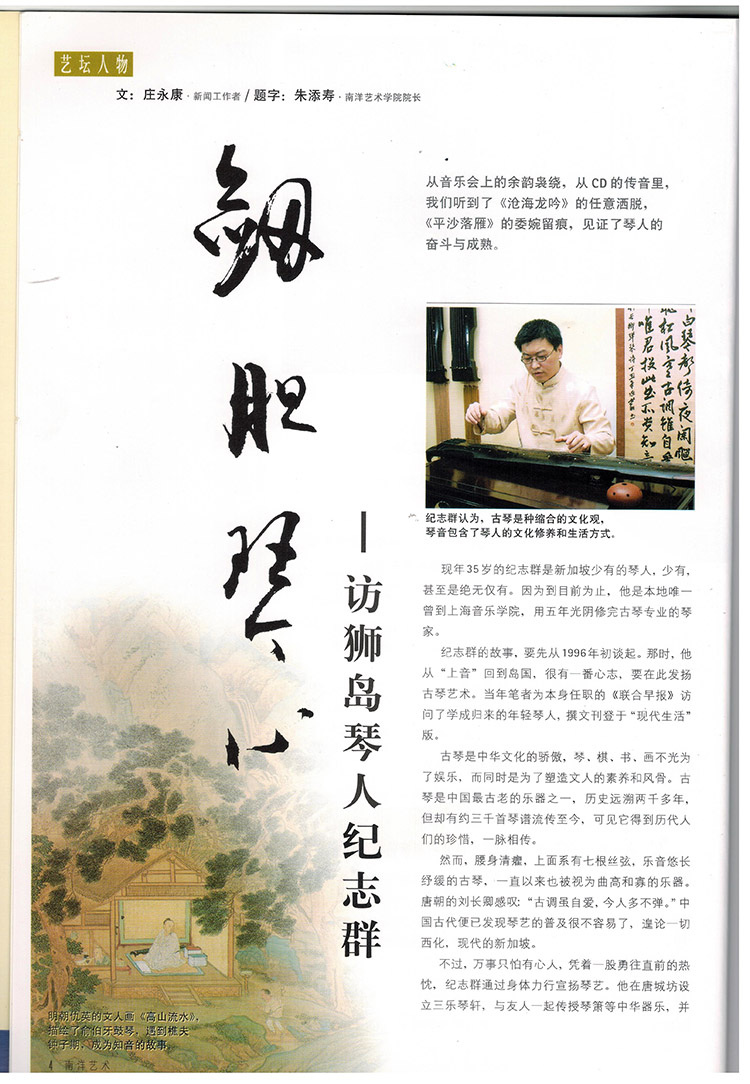 艺坛人物
文：庄永康·新闻工作者 / 题字：朱添寿·南洋艺术学院院长
剑胆琴心
— 访狮岛琴人纪志群
从音乐会上的余韵袅绕，从 CD 的传音里，
我们听到了《沧海龙吟》的任意洒脱，
《平沙落雁》的委婉留痕，见证了琴人的
奋斗与成熟。
纪志群认为，古琴是种缩合的文化观，
琴音包含了琴人的文化修养和生活方式。
现年35岁的纪志群是新加坡少有的琴人，少有，
甚至是绝无仅有。因为到目前为止，他是本地唯一
曾到上海音乐学院，用五年光阴修完古琴专业的琴
家。
纪志群的故事，要先从1996年初谈起。那时，他
从“上音”回到岛国，很有一番心志，要在此发扬
古琴艺术。当年笔者为本身任职的《联合早报》访
问了学成归来的年轻琴人，撰文刊登于“现代生活”
版。
古琴是中华文化的骄傲，琴、棋、书、画不光为
了娱乐，而同时是为了塑造文人的素养和风骨。古
琴是中国最古老的乐器之一，历史远溯两千多年，
但却有约三千首琴谱流传至今，可见它得到历代人
们的珍惜，一脉相传。
然而，腰身清癯，上面系有七根丝弦，乐音悠长
纾缓的古琴，一直以来也被视为曲高和寡的乐器。
唐朝的刘长卿感叹：“古调虽自爱，今人多不弹。”中
国古代便已发现琴艺的普及很不容易了，遑论一切
西化，现代的新加坡。
不过，万事只怕有心人，凭着一股勇往直前的热
忱，纪志群通过身体力行宣扬琴艺。他在唐城坊设
立三乐琴轩，与友人一起传授琴箫等中华器乐，并
明朝仇英的文人画《高山流水》，
描绘了俞伯牙鼓琴，遇到樵夫
钟子期，成为知音的故事。
4 南洋艺术